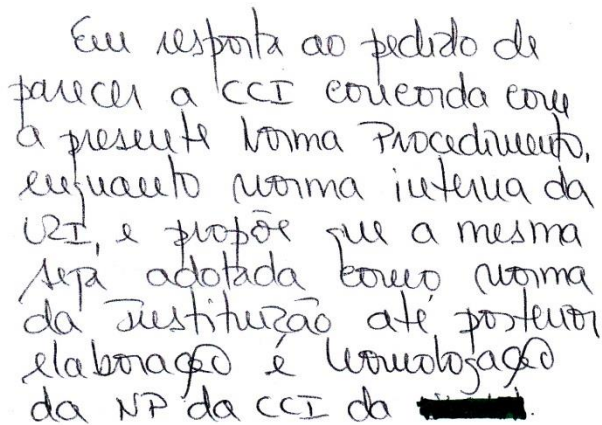 Em resposta ao pedido de
parecer a CCI concorda com
a presente Norma Procedimento,
enquanto norma interna da
URI, e propõe que a mesma
seja adotada como norma
da Instituição até posterior
elaboração e homologação
da NP da CCI do